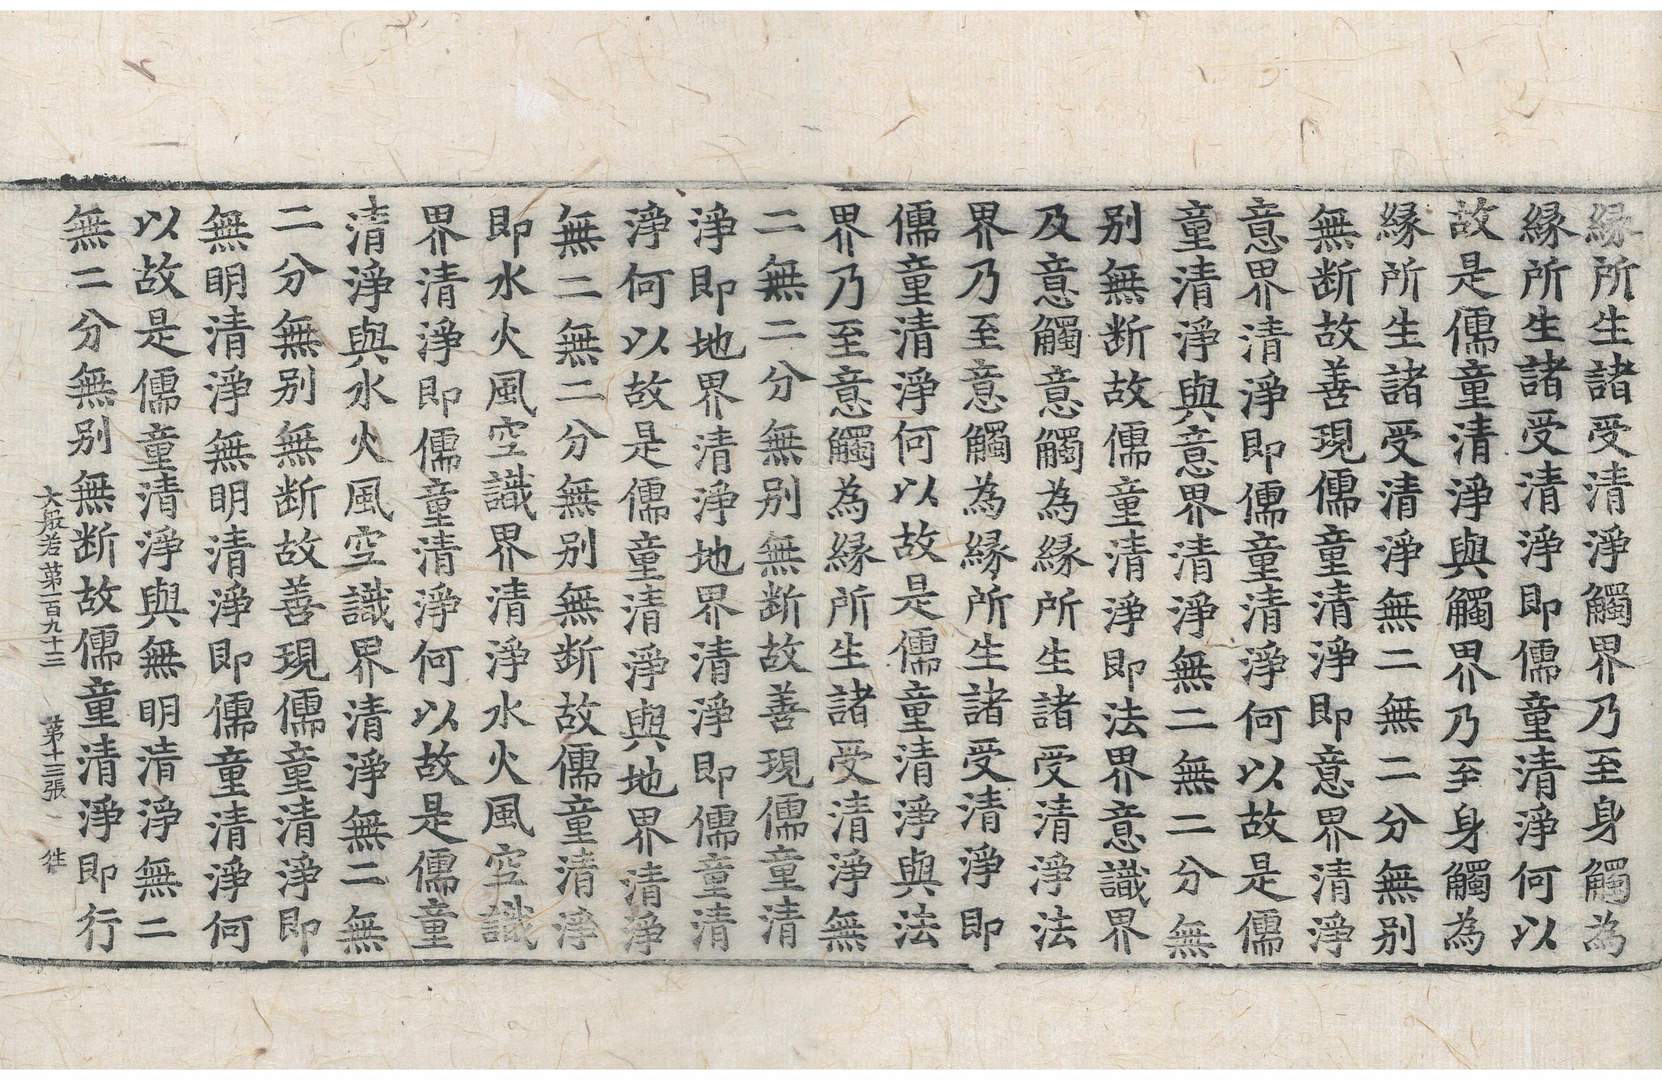 縁所生諸受清淨觸界乃至身觸為
縁所生諸受清淨即儒童清淨何以
故是儒童清淨與觸界乃至身觸為
縁所生諸受清淨無二無二分無别
無断故善現儒童清淨即意界清淨
意界清淨即儒童清淨何以故是儒
童清淨與意界清淨無二無二分無
别無断故儒童清淨即法界意識界
及意觸意觸為縁所生諸受清淨法
界乃至意觸為縁所生諸受清淨即
儒童清淨何以故是儒童清淨與法
界乃至意觸為縁所生諸受清淨無
二無二分無别無断故善現儒童清
淨即地界清淨地界清淨即儒童清
淨何以故是儒童清淨與地界清淨
無二無二分無别無断故儒童清淨
即水火風空識界清淨水火風空識
界清淨即儒童清淨何以故是儒童
清淨與水火風空識界清淨無二無
二分無别無断故善現儒童清淨即
無明清淨無明清淨即儒童清淨何
以故是儒童清淨與無明清淨無二
無二分無别無断故儒童清淨即行
大般若第一百九十三 第十三張 徃